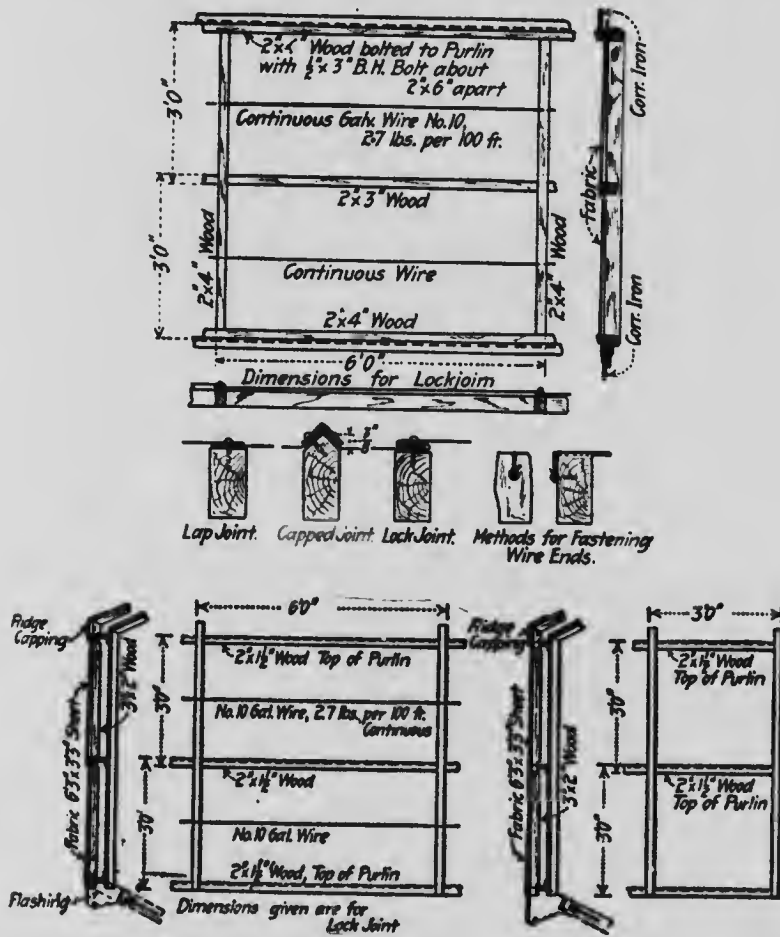 2"x4" Wood bolted to Purlin
with ½"x 3" B.H. Bolt about
2"x6" apart
3'0"
Continuous Galv. Wire No.10,
2.7 lbs. per 100 ft.
2"x3" Wood
3'0"
2"x4" Wood
Continuous Wire
2"x4" Wood
2"x4" Wood
6'0"
Dimensions for Lockjoim
Corr. Iron
Fabric
Corr. Iron
Lap Joint.
Capped Joint.
Lock Joint.
Methods for Fastening
Wire Ends.
Ridge
Capping
3"x2" Wood
Fabric 6'3"x3'3" Sheet
Flashing
6'0"
2"x1½" Wood Top of Purlin
3'0"
No.10 Gal. Wire, 2.7 lbs. per 100 ft.
Continuous
2"x1½" Wood
3'0"
No.10 Gal. Wire
2"x1½" Wood, Top of Purlin
Dimensions given are for
Lock Joint
Ridge
Capping
Fabric 6'3"x3'3" Sheet
3"x2" Wood
3'0"
2"x1½" Wood
Top of Purlin
3'0"
2"x1½" Wood
Top of Purlin
3'0"